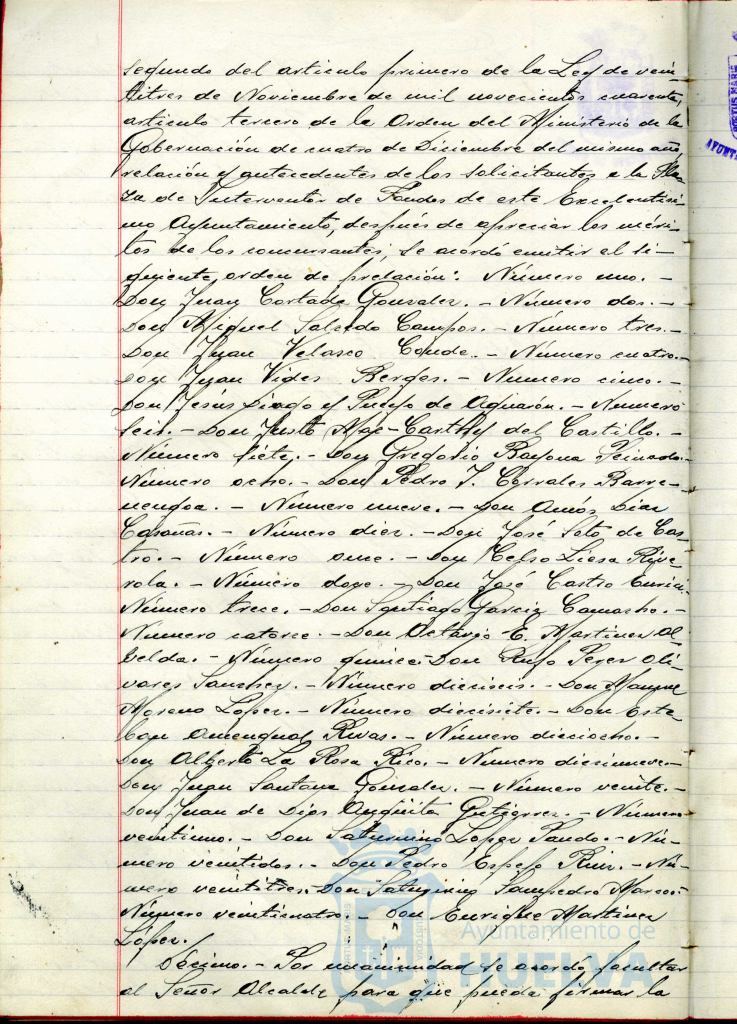 segundo del articulo primero de la Ley de vein
titres de Noviembre de mil novecientos cuarenta,
articulo tercero de la Orden del Ministerio de la
Gobernación de cuatro de Diciembre del mismo año
relación y antecedentes de los solicitantes a la Pla-
za de Interventor de Fondos de este Excelentisi-
mo Ayuntamiento, después de apreciar los méri-
tos de los concursantes, se acordó emitir el si-
guiente orden de prelación: - Número uno. -
Don Juan Cortada Gonzalez. - Número dos. -
Don Miguel Salcedo Campos. - Número tres. -
Don Juan Velasco Conde. - Número cuatro. -
Don Juan Vides Berges. - Numero cinco. -
Don Jesús Diago y Pueyo de Aguarón. - Numero
seis. - Don Justo Mac-Carthy del Castillo. -
Número siete. - Don Gregorio Bayona Peinado. -
Número ocho. - Don Pedro J. Corrales Barre-
nengoa. - Número nueve. - Don Amós Diaz
Casañas. - Número diez. - Don José Soto de Cas-
tro. - Número once. - Don Celso Liesa Rive-
rola. - Número doce. - Don José Castro
Número trece. - Don Santiago Garcia Camacho. -
Número catorce. - Don Octavio E. Martinez Al
belda. - Número quince Don Rufo Perez Oli-
vares Sanchez. - Número dieciseis. - Don Manuel
Moreno Lopez. - Número diecisiete. - Don Este-
ban Amengual Rivas. - Número dieciocho. -
Don Alberto La Rosa Rico. - Número diecinueve. -
Don Juan Santana Gonzalez. - Número veinte. -
Don Juan de Dios Angüita Gutierrez. - Número
veintiuno. - Don Saturnino Lopez Pando. - Nú-
mero veintidos. - Don Pedro Espejo Ruiz. - Nú-
mero veintitres. Don Saturnino Sampedro Marcos. -
Número veinticuatro. - Don Enrique Martinez
López.
Décimo. - Por unanimidad se acordó facultar
al Señor Alcalde para que pueda firmar la
Ayuntamiento de
HUELVA